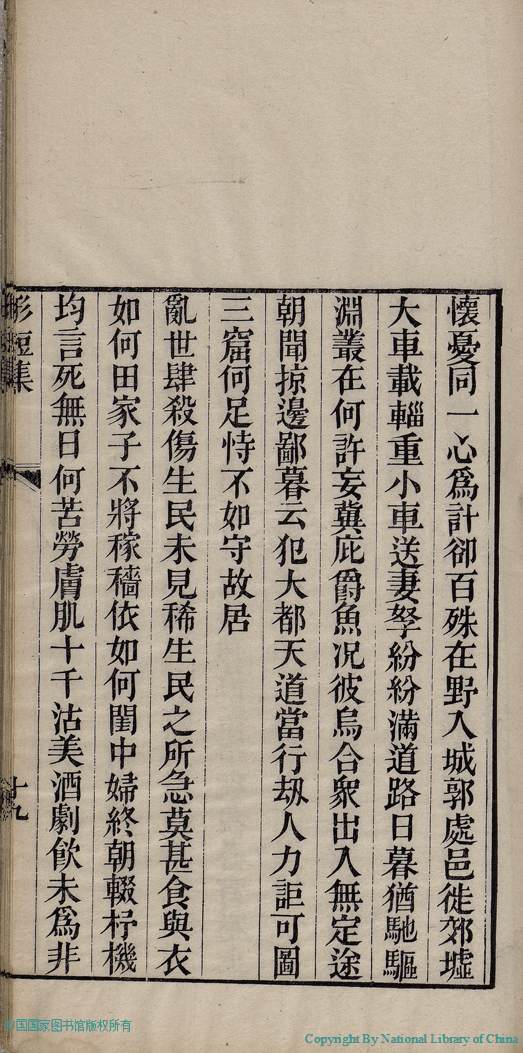 懷憂同一心爲計卻百殊在野入城郭處邑徙郊墟
大車載輜重小車送妻孥紛紛滿道路日暮猶馳驅
淵叢在何許妄冀庇爵魚况彼烏合衆出入無定途
朝聞掠邊鄙暮云犯大都天道當行刼人力詎可圖
三窟何足恃不如守故居
亂世肆殺傷生民未見稀生民之所急莫甚食與衣
如何田家子不將稼穡依如何閨中婦終朝輟杼機
均言死無日何苦勞膚肌十千沽美酒劇飲未爲非
短集
十九
中国国家图书馆版权所有
Copyright By National Library of China